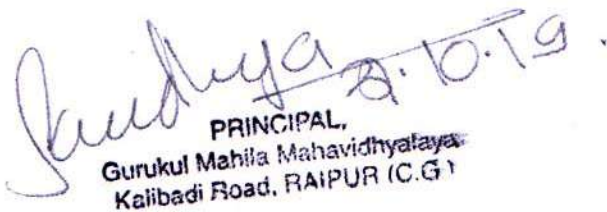 Sandhya
8.10.19.
PRINCIPAL,
Gurukul Mahila Mahavidhyalaya
Kalibadi Road, RAIPUR (C.G)